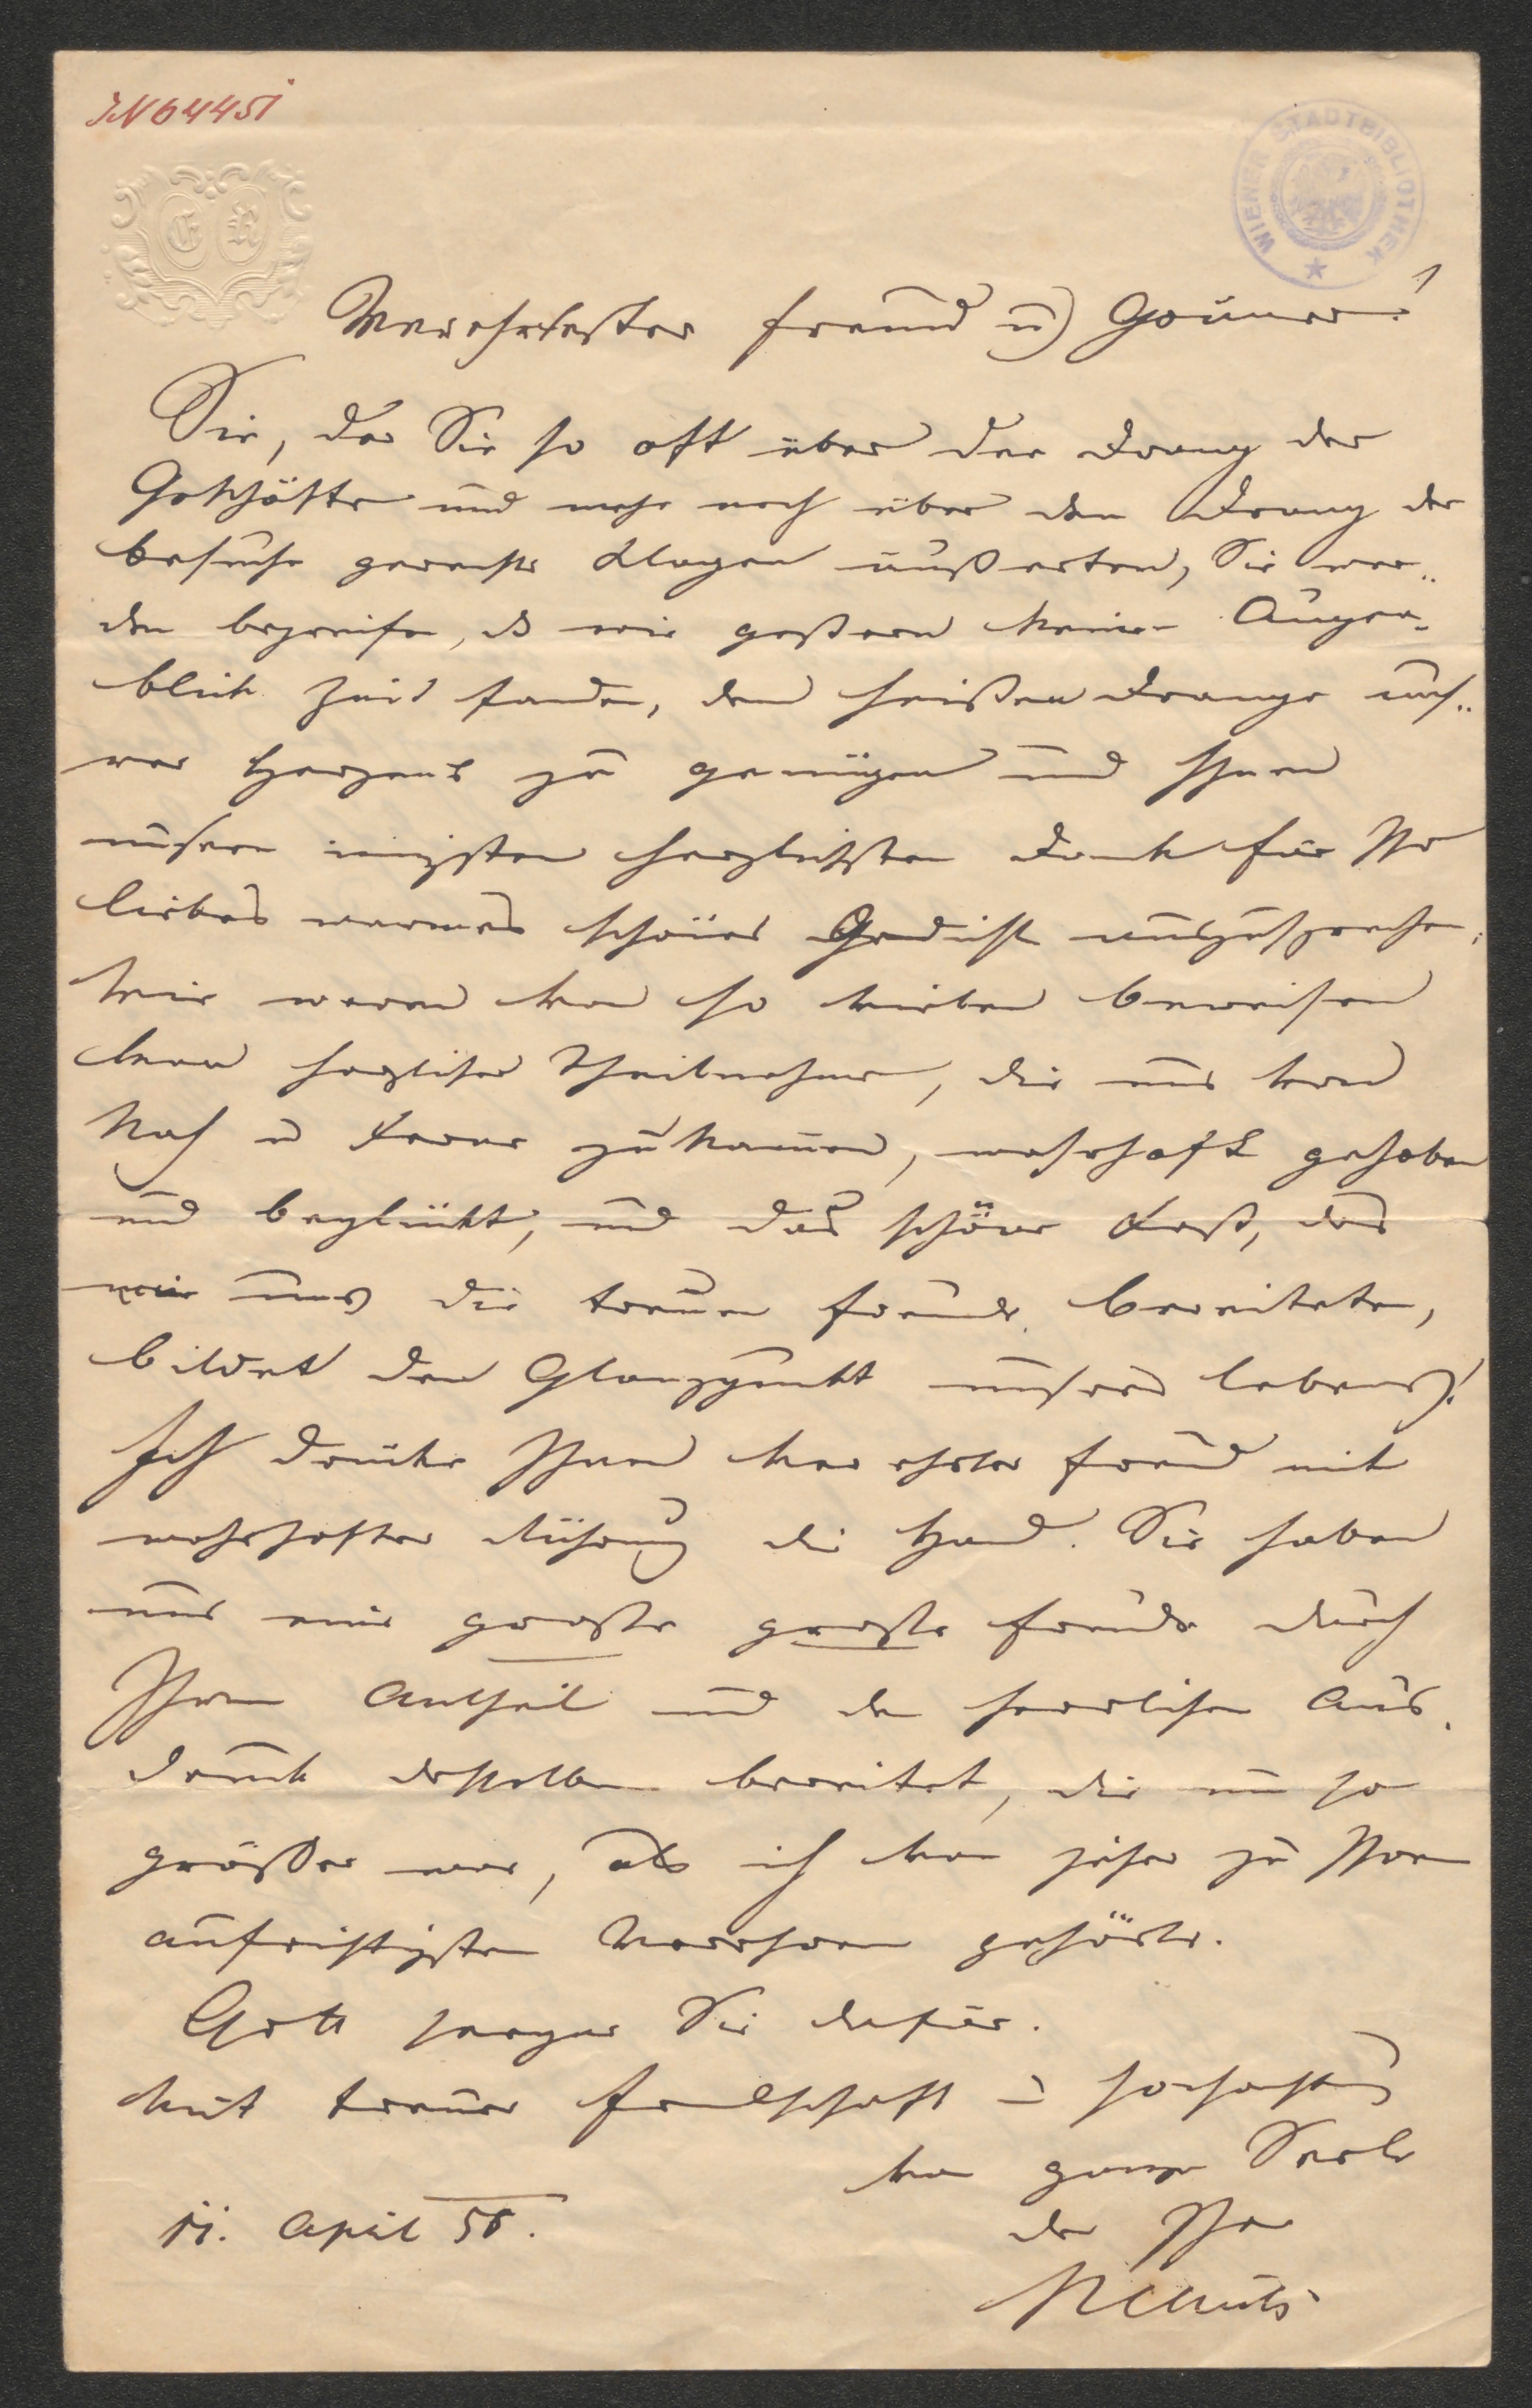 IN 64451
WIENER STADTBIBLIOTHEK
E R
Verehrtester Freund u Gönner!
Sie, der Sie so oft über den Drang der
Geschäfte und mehr noch über den Drang der
Besuche gerechte Klagen äußerten, Sie wer„
den begreifen, dß wir gestern keinen Augen„
blick Zeit fanden, dem heißen Drange uns„
res Herzens zu genügen und Ihnen
unsern innigsten herzlichsten Dank für Ihr
liebes warmes schönes Gedicht auszusprechen.
Wir waren von so vielen Beweisen
herzlicher Theilnahme, die uns von
Nah u Ferne zukamen, wahrhaft gehoben
und beglückt, und das schöne Fest, das
uns die treuen Freunde bereiteten,
bildet den Glanzpunkt unseres Lebens!
Ich drücke Ihnen verehrter Freund mit
wahrhafter Rührung die Hand. Sie haben
uns eine große große Freude durch
Ihren Antheil und den herrlichen Aus„
druck desselben bereitet, die um so
größer war, als ich von jeher zu Ihren
aufrichtigsten Verehrern gehörte.
Gott segne Sie dafür.
Mit treuer Freundschaft u Hochachtung
von ganzer Seele
der Ihre
11. April 56.